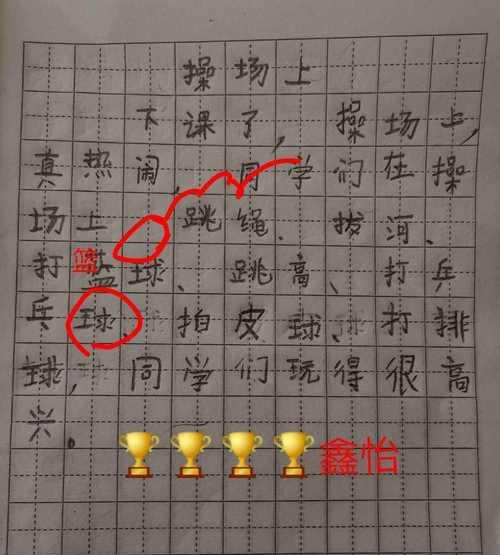 操场上
下课了,操场上,
真热闹,同学们在操
场上跳绳、拔河、
打篮球、跳高、打乒
乓球、拍皮球、打排
球,同学们玩得很高
兴。
篮
鑫怡